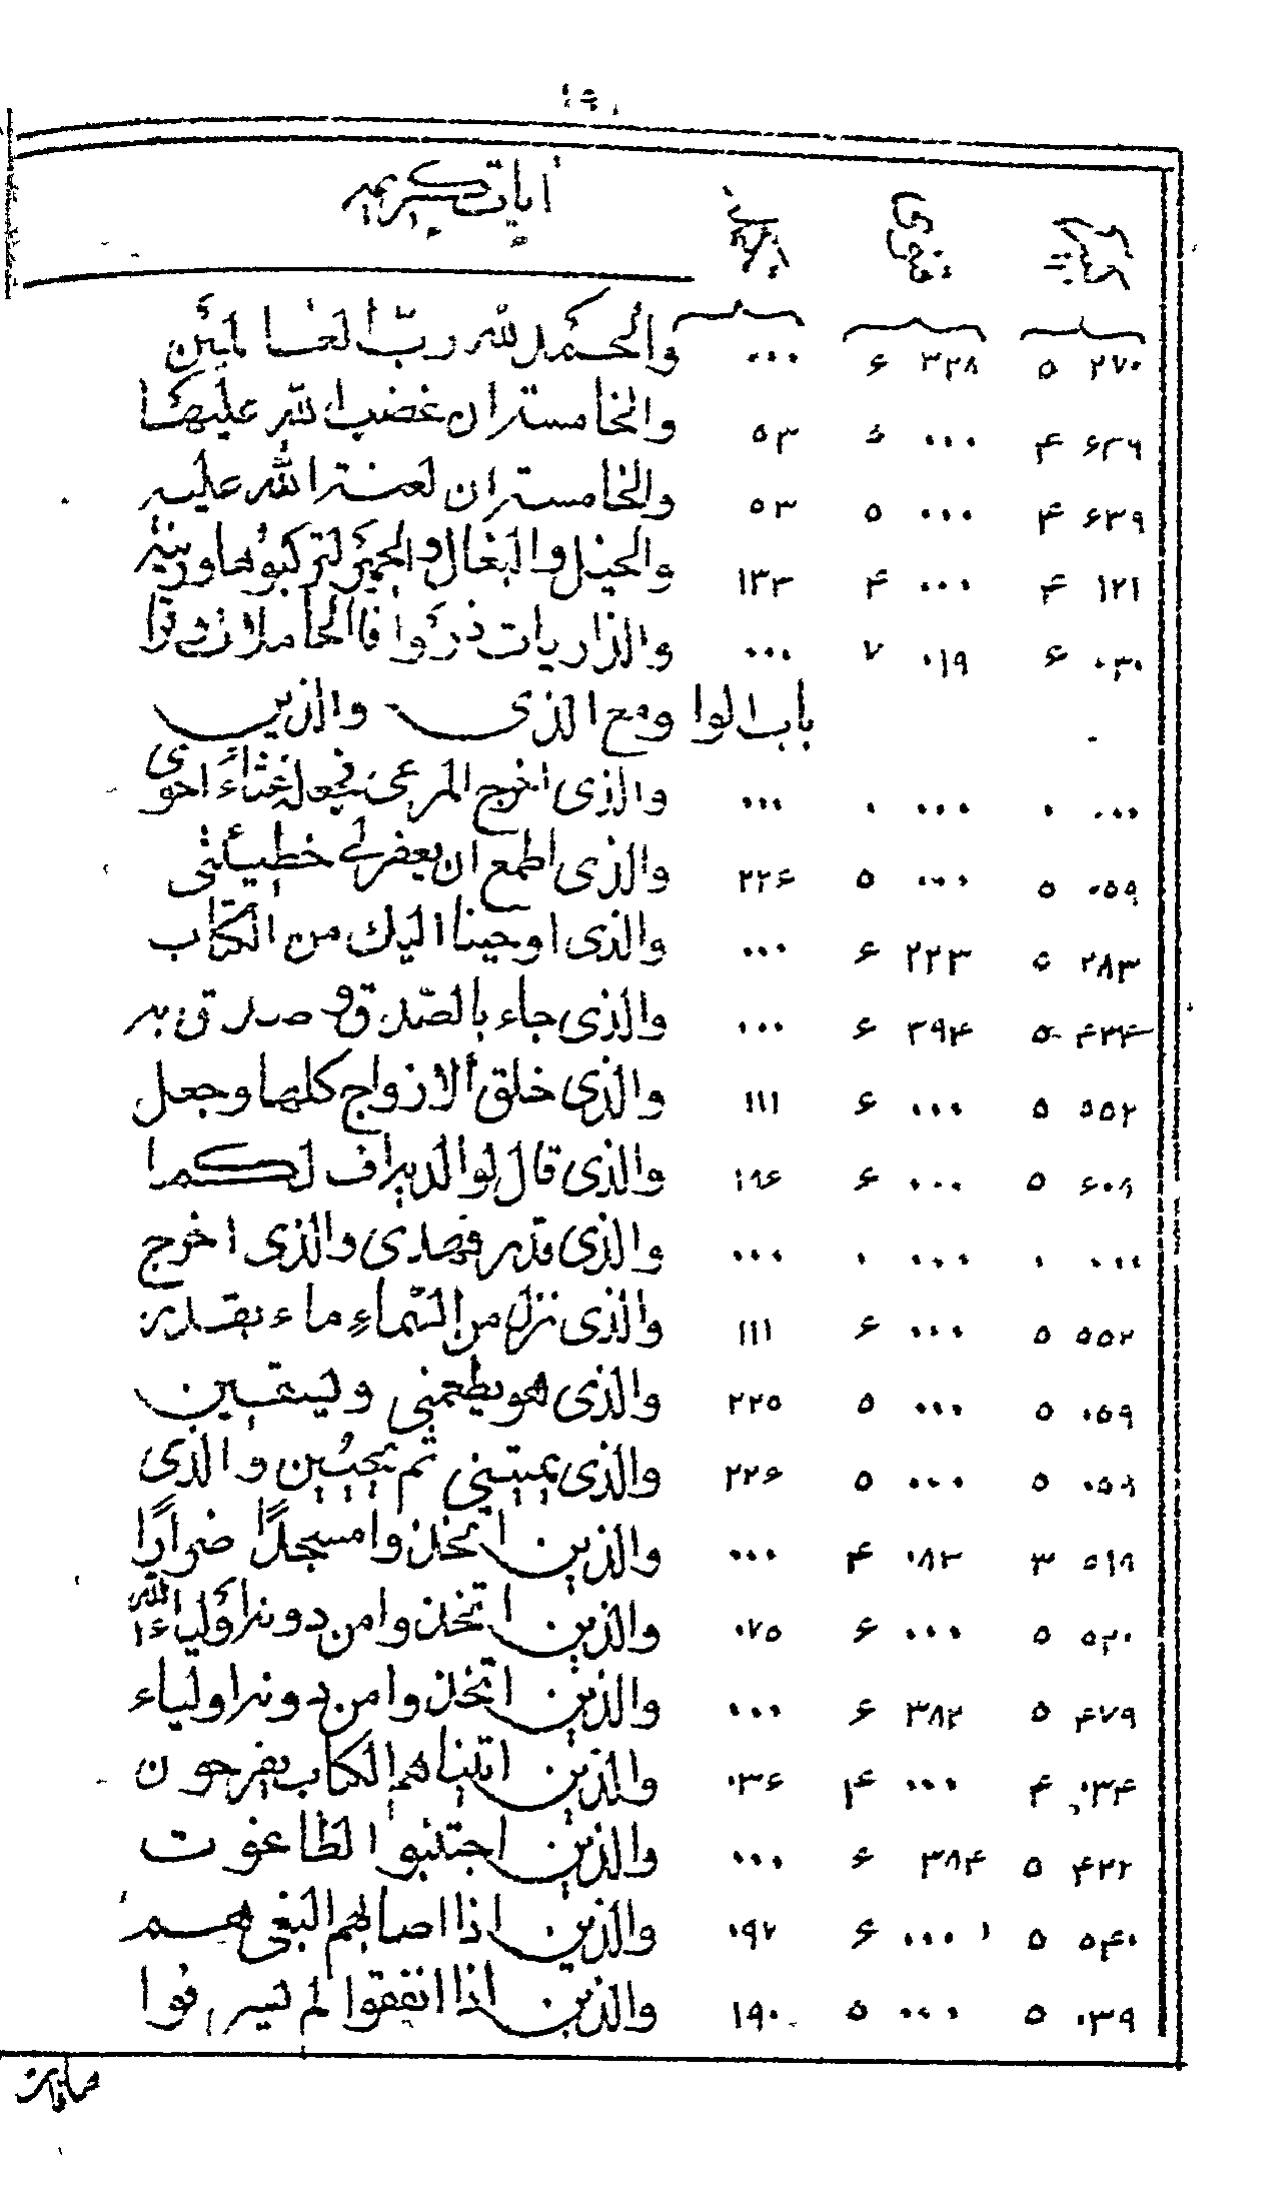 ۱۹۰
آيات كريمه
۲۷۰ ۵ ۳۲۸ ۶ ۰۰۰ والحمد لله ربّ العالمين
۶۳۹ ۴ ۰۰۰ ۵ ۵۳ والخامسة ان غضب الله عليها
۶۳۹ ۴ ۰۰۰ ۵ ۵۳ والخامسة ان لعنة الله عليه
۱۲۱ ۴ ۰۰۰ ۴ ۱۳۳ والخيل والبغال والحمير لتركبوها وزينة
۰۳۰ ۶ ۰۱۹ ۷ ۰۰۰ والذاريات ذروا فالحاملات وقرا
باب الواو مع الذى والذين
۰۰۰ ۰ ۰۰۰ ۰ ۰۰۰ والذى اخرج المرعى فجعله غثاء احوى
۰۵۹ ۵ ۰۰۰ ۵ ۲۲۶ والذى اطمع ان يغفرلى خطيئتى
۲۸۳ ۵ ۲۲۳ ۶ ۰۰۰ والذى اوحينا اليك من الكتاب
۴۳۴ ۵ ۳۹۴ ۶ ۰۰۰ والذى جاء بالصّدق وصدق به
۵۵۲ ۵ ۰۰۰ ۶ ۱۱۱ والذى خلق الازواج كلها وجعل
۶۰۹ ۵ ۰۰۰ ۶ ۱۹۶ والذى قال لوالديه اف لكما
۰۰۰ ۰ ۰۰۰ ۰ ۰۰۰ والذى قدر فهدى والذى اخرج
۵۵۲ ۵ ۰۰۰ ۶ ۱۱۱ والذى نزل من السّماء ماء بقدر
۰۵۹ ۵ ۰۰۰ ۵ ۲۲۵ والذى هو يطعمنى ويسقين
۰۵۹ ۵ ۰۰۰ ۵ ۲۲۶ والذى يميتنى ثم يحيين والذى
۵۱۹ ۳ ۰۸۳ ۴ ۰۰۰ والذين اتخذوا مسجدًا ضرارًا
۵۲۰ ۵ ۰۰۰ ۶ ۰۷۵ والذين اتخذوا من دونه اولياء الله
۴۷۹ ۵ ۳۸۲ ۶ ۰۰۰ والذين اتخذوا من دونه اولياء
۰۳۴ ۴ ۰۰۰ ۴ ۰۳۶ والذين اتيناهم الكتاب يفرحون
۴۲۲ ۵ ۳۸۴ ۶ ۰۰۰ والذين اجتنبوا الطاغوت
۵۴۰ ۵ ۰۰۰ ۶ ۰۹۲ والذين اذا اصابهم البغى هم
۰۳۹ ۵ ۰۰۰ ۵ ۱۹۰ والذين اذا انفقوا لم يسرفوا